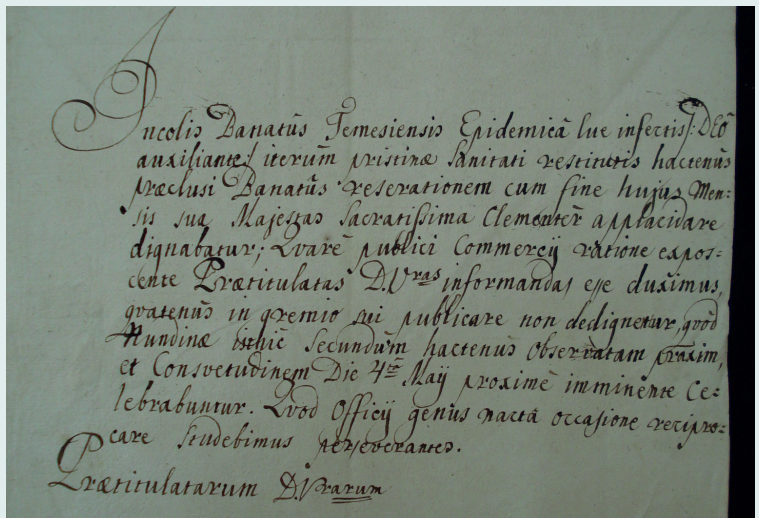 Incolis Banatûs Temesiensis Epidemicâ lue infectis /: DEÔ
auxiliante :/ iterùm pristinæ sanitati restitutis hactenùs
præclusi Banatûs reserationem cum fine hujus Men=
sis sua Majestas Sacratissima Clementèr applacidare
dignabatur; Qvarè publici Commercÿ ratione expos=
cente Prætitulatas D. Vras informandas esse duximus,
qvatenùs in gremio sui publicare non dedignetur, qvòd
Nundinæ isthic secundùm hactenùs observatam praxim,
et Consvetudinem Die 4tâ Maÿ proximè imminente Ce=
lebrabuntur. Qvod Officÿ genus nactâ occasione recipro=
care studebimus perseverantes.
Prætitulatarum D. Vrarum